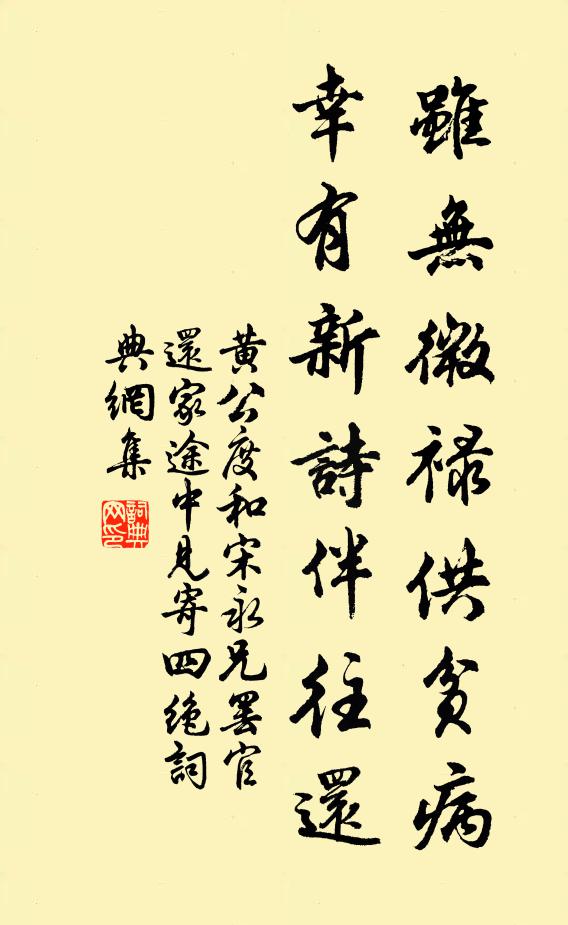 雖無微祿供貧病
幸有新詩伴往還
黃公度和宋永兄罷官
還家途中見寄四絕詞
典網集
詞典網印